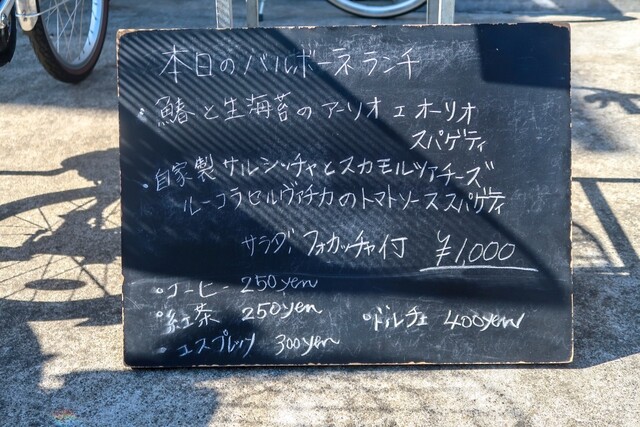 本日のバルボーネランチ
・鰆と生海苔のアーリオ エ オーリオ
スパゲティ
・自家製サルシッチャとスカモルツァチーズ
ルーコラセルヴァチカのトマトソーススパゲティ
サラダ、フォカッチャ付 ¥1,000
・コーヒー 250yen
・紅茶 250yen ・ドルチェ 400yen
・エスプレッソ 300yen